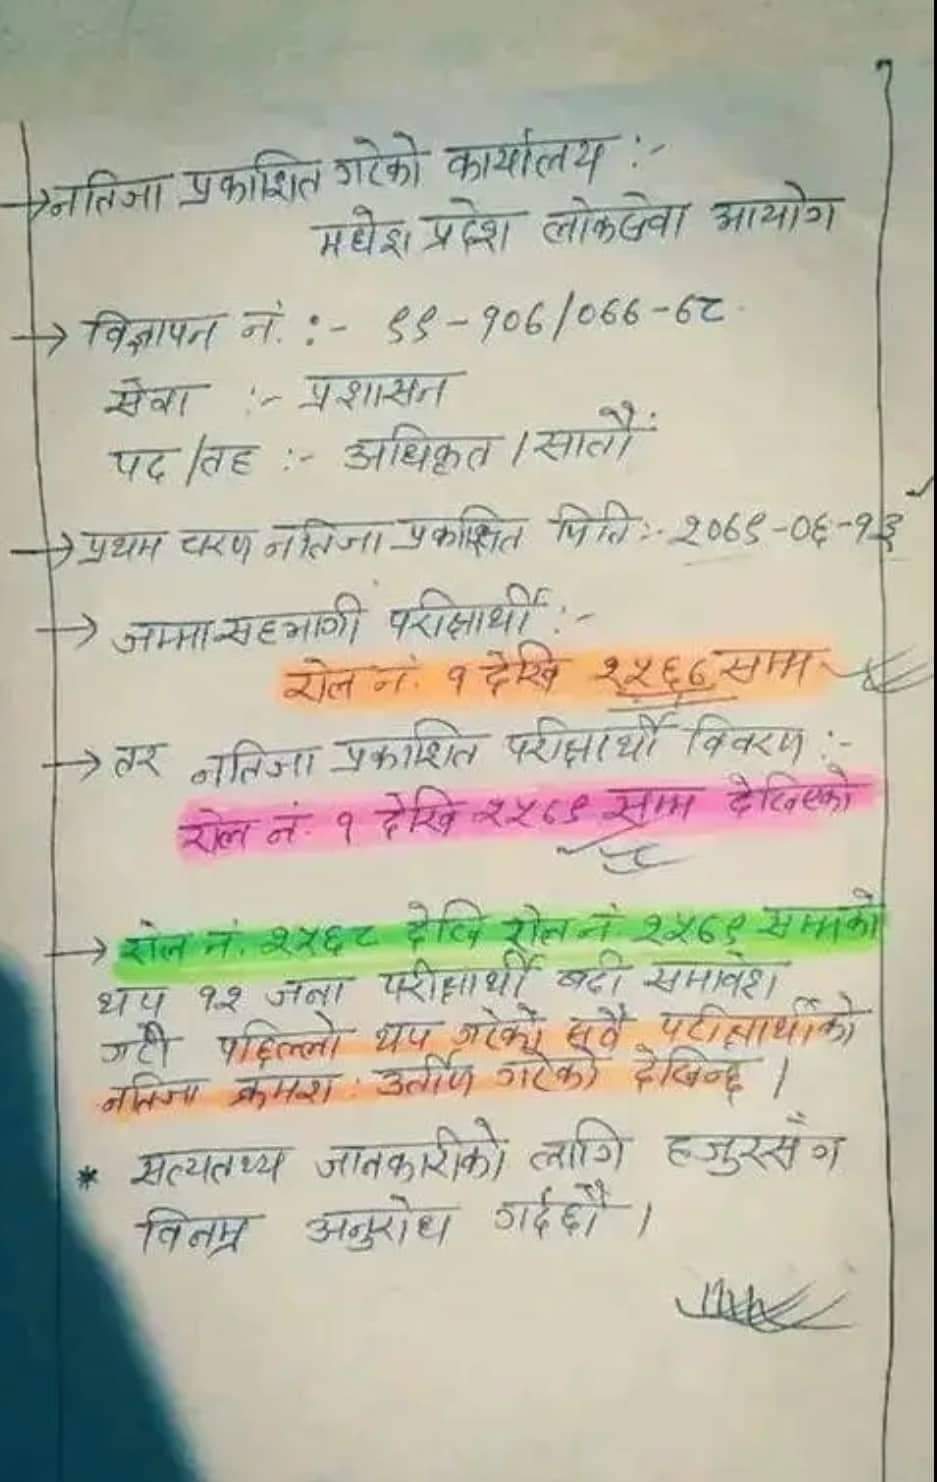 नतिजा प्रकाशित गरेको कार्यालय :-
मधेश प्रदेश लोकसेवा आयोग
विज्ञापन नं. :- ९९-१०७/०७७-७८
सेवा :- प्रशासन
पद/तह :- अधिकृत/सातौं
प्रथम चरण नतिजा प्रकाशित मिति:- २०७९-०६-१३
जम्मा सहभागी परीक्षार्थी :-
रोल नं. १ देखि २५६७ सम्म
तर नतिजा प्रकाशित परीक्षार्थी विवरण :-
रोल नं. १ देखि २५७९ सम्म देखिएको
रोल नं. २५६८ देखि रोल नं. २५७९ सम्मको
थप १२ जना परीक्षार्थी बढी समावेश
गरी पहिल्लो थप गरेको सबै परीक्षार्थीको
नतिजा क्रमश: उर्तीण गरेको देखिन्छ।
* सत्यतथ्य जानकारीको लागि हजुरसँग
विनम्र अनुरोध गर्दछौं।